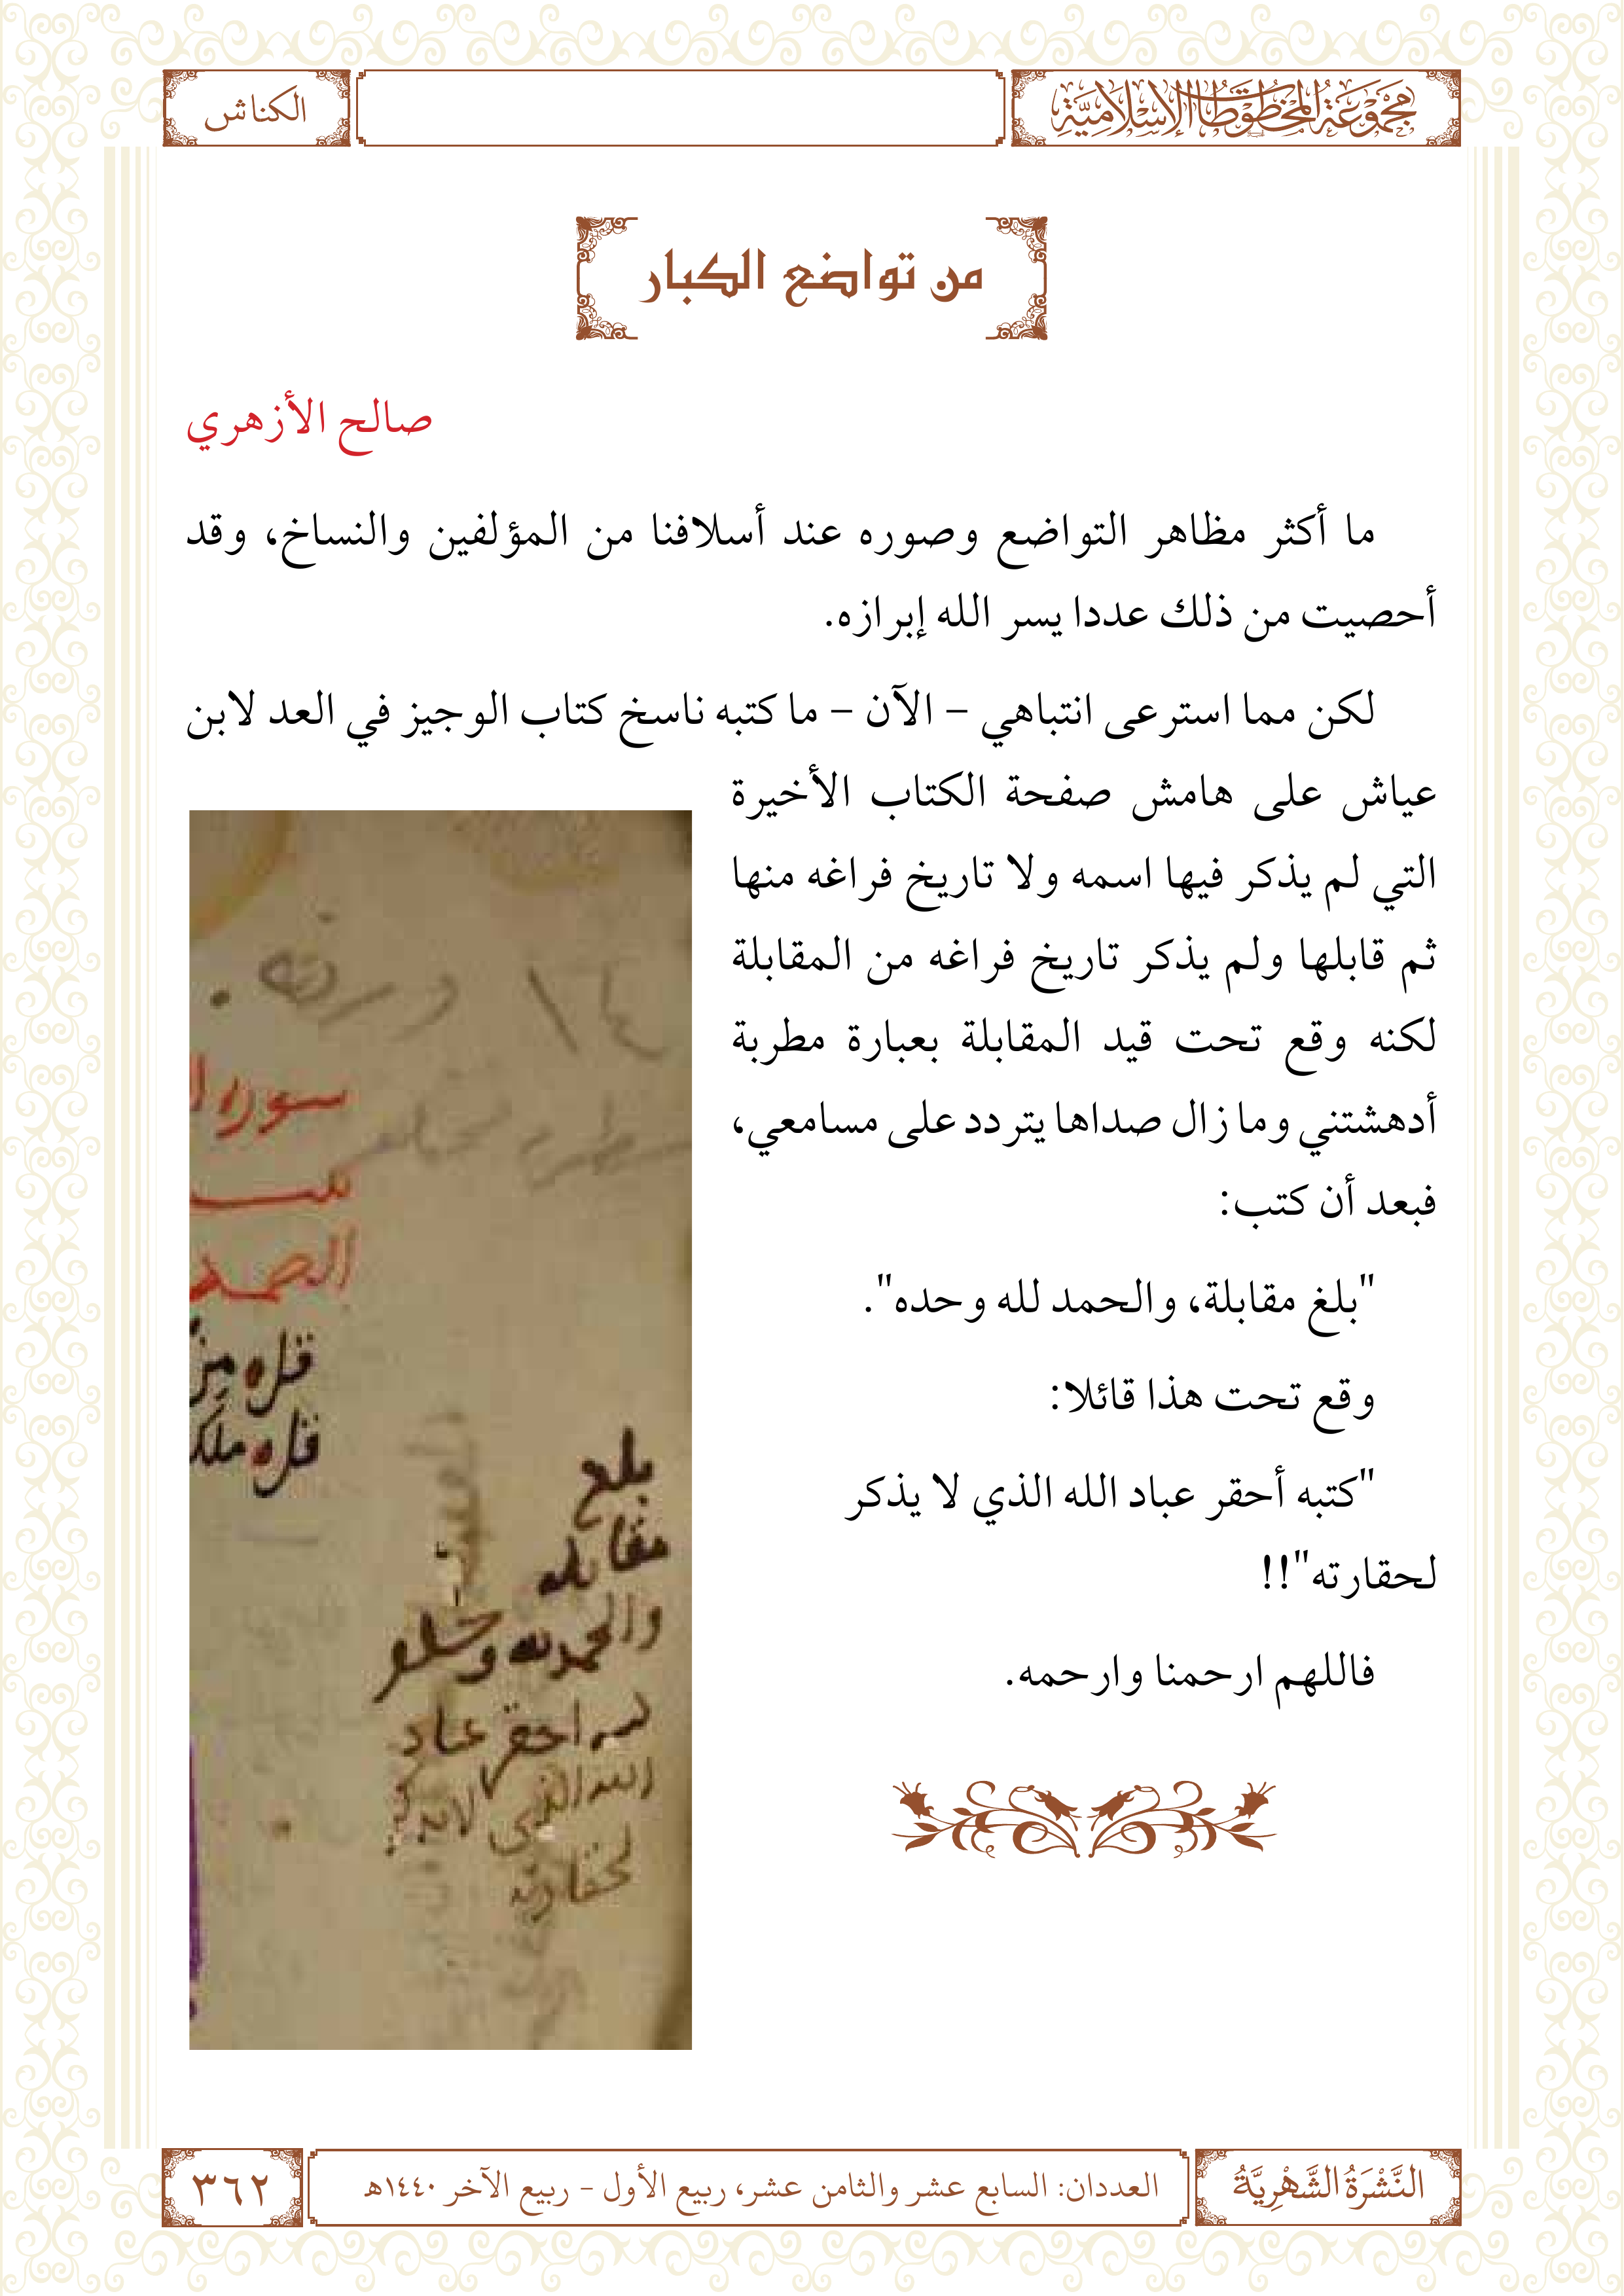 مَجْمُوعَةُ المَخْطُوطَاتِ الإِسْلَامِيَّةِ
الكناش
من تواضع الكبار
صالح الأزهري
ما أكثر مظاهر التواضع وصوره عند أسلافنا من المؤلفين والنساخ، وقد
أحصيت من ذلك عددا يسر الله إبرازه.
لكن مما استرعى انتباهي – الآن – ما كتبه ناسخ كتاب الوجيز في العد لابن
عياش على هامش صفحة الكتاب الأخيرة
التي لم يذكر فيها اسمه ولا تاريخ فراغه منها
ثم قابلها ولم يذكر تاريخ فراغه من المقابلة
لكنه وقع تحت قيد المقابلة بعبارة مطربة
أدهشتني وما زال صداها يتردد على مسامعي،
فبعد أن كتب:
"بلغ مقابلة، والحمد لله وحده".
وقع تحت هذا قائلا:
"كتبه أحقر عباد الله الذي لا يذكر
لحقارته"!!
فاللهم ارحمنا وارحمه.
ورقة
سورة ا
الصمد
بلغ
مقابله
والحمد لله وحده
كتبه احقر عباد
الله الذي لا يذكر
لحقارته
النَّشْرَةُ الشَّهْرِيَّةُ
العددان: السابع عشر والثامن عشر، ربيع الأول - ربيع الآخر ١٤٤٠هـ
٣٦٢